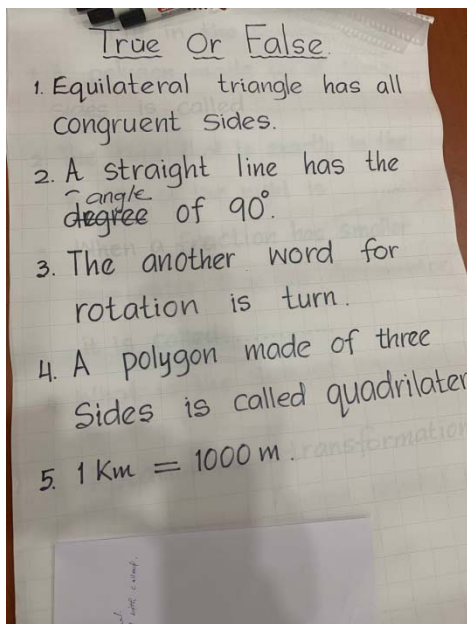 True Or False
1. Equilateral triangle has all
congruent sides.
2. A straight line has the
angle
degree of 90°.
3. The another word for
rotation is turn.
4. A polygon made of three
Sides is called quadrilater
5. 1 Km = 1000 m.
transformation